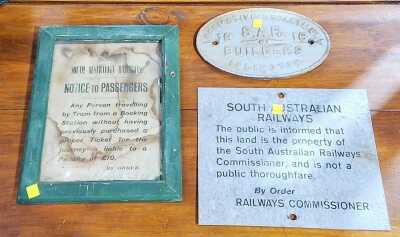 SOUTH AUSTRALIAN RAILWAYS
NOTICE to PASSENGERS
Any Person travelling
by Tram from a Booking
Station without having
previously purchased a
proper Ticket for the
journey is liable to a
Penalty of £10.
BY ORDER
19 S.A.R. 16
BUILDERS
SOUTH AUSTRALIAN
RAILWAYS
The public is informed that
this land is the property of
the South Australian Railways
Commissioner, and is not a
public thoroughfare.
By Order
RAILWAYS COMMISSIONER